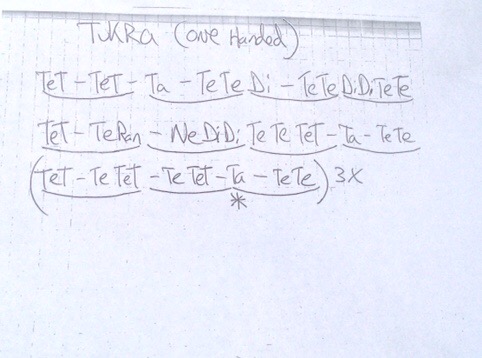 TUKRa (one Handed)
TeT - TeT - Ta - TeTe Di - TeTe DiDi TeTe
TeT - TeRan - NeDiDi TeTe TeT - Ta - TeTe
(TeT - Te TeT - Te TeT - Ta - TeTe) 3x
*